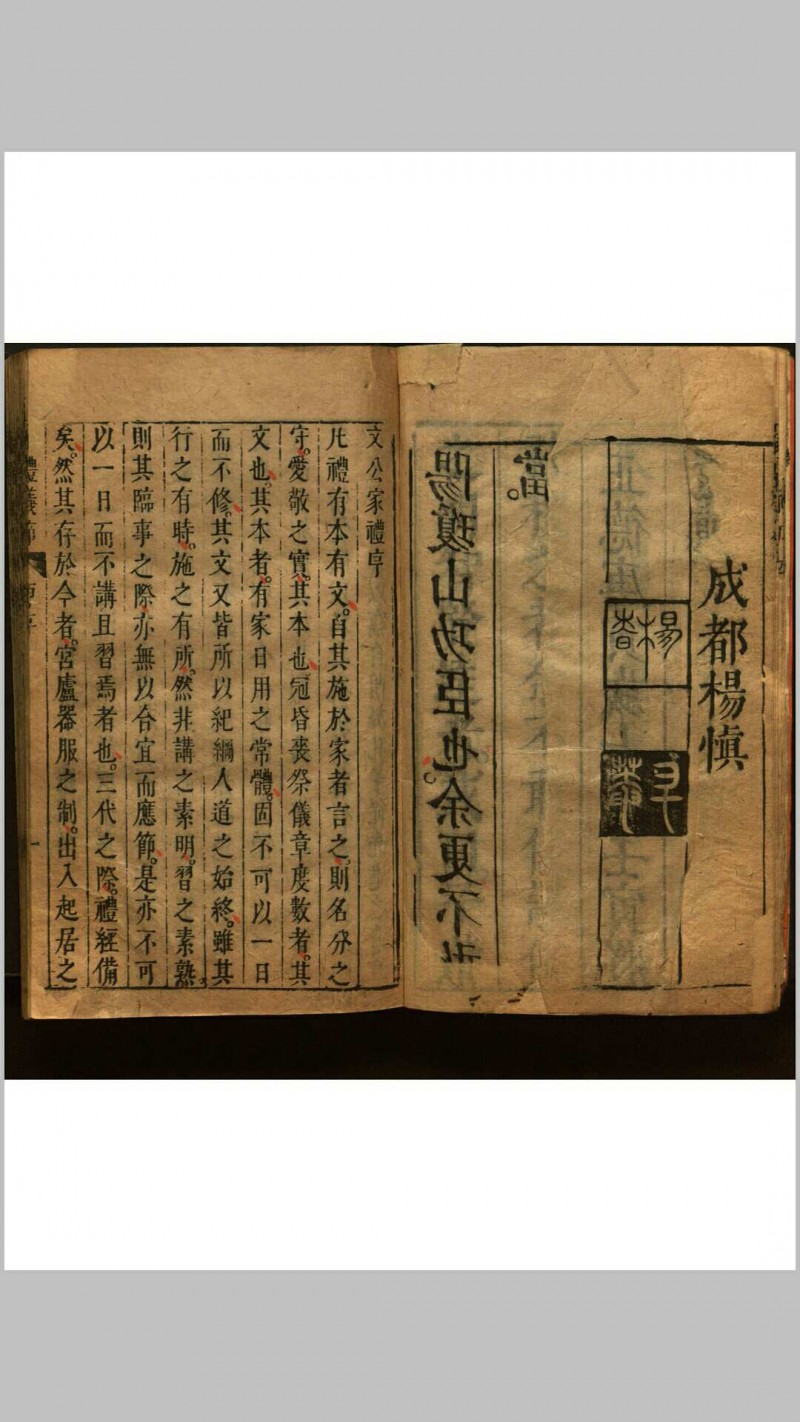 成都楊慎
楊昚
升菴
當。
陽瓊山功臣也。余更不
文公家禮序
凡禮有本有文。自其施於家者言之。則名分之
守。愛敬之實。其本也。冠昏喪祭儀章度數者。其
文也。其本者。有家日用之常體。固不可以一日
而不修。其文又皆所以紀綱人道之始終。雖其
行之有時。施之有所。然非講之素明。習之素熟。
則其臨事之際。亦無以合宜而應節。是亦不可
以一日而不講且習焉者也。三代之際。禮經備
矣。然其存於今者。宮廬器服之制。出入起居之
禮儀節 序 一